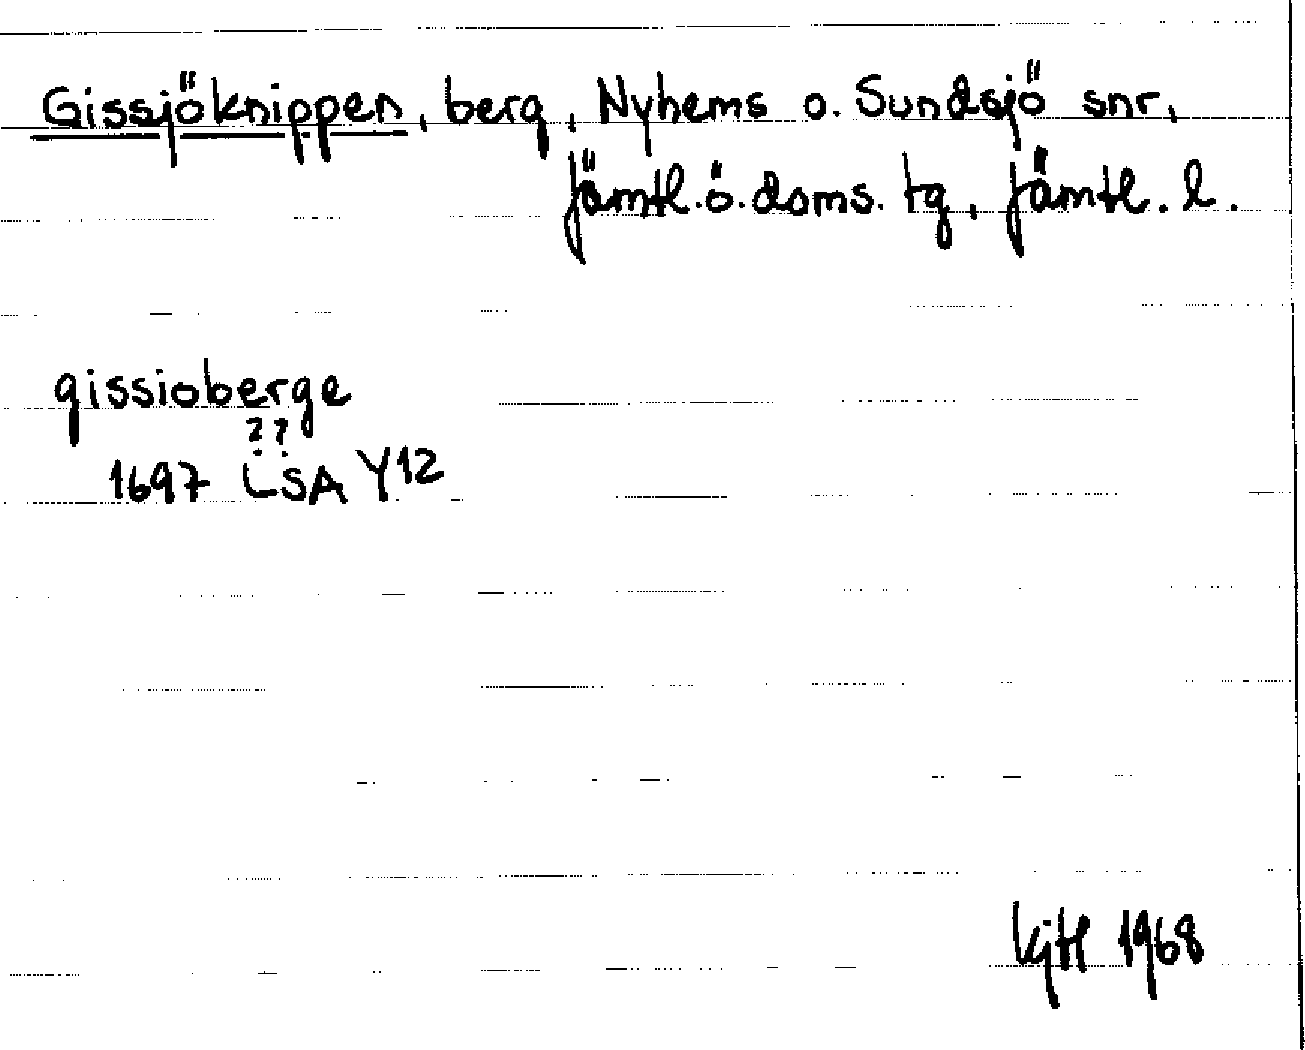 Gissjöknippen, berg, Nyhems o. Sundsjö snr,
Jämtl. ö. doms. tg, Jämtl. l.
gissioberge
??
1697 LSA Y12
1968